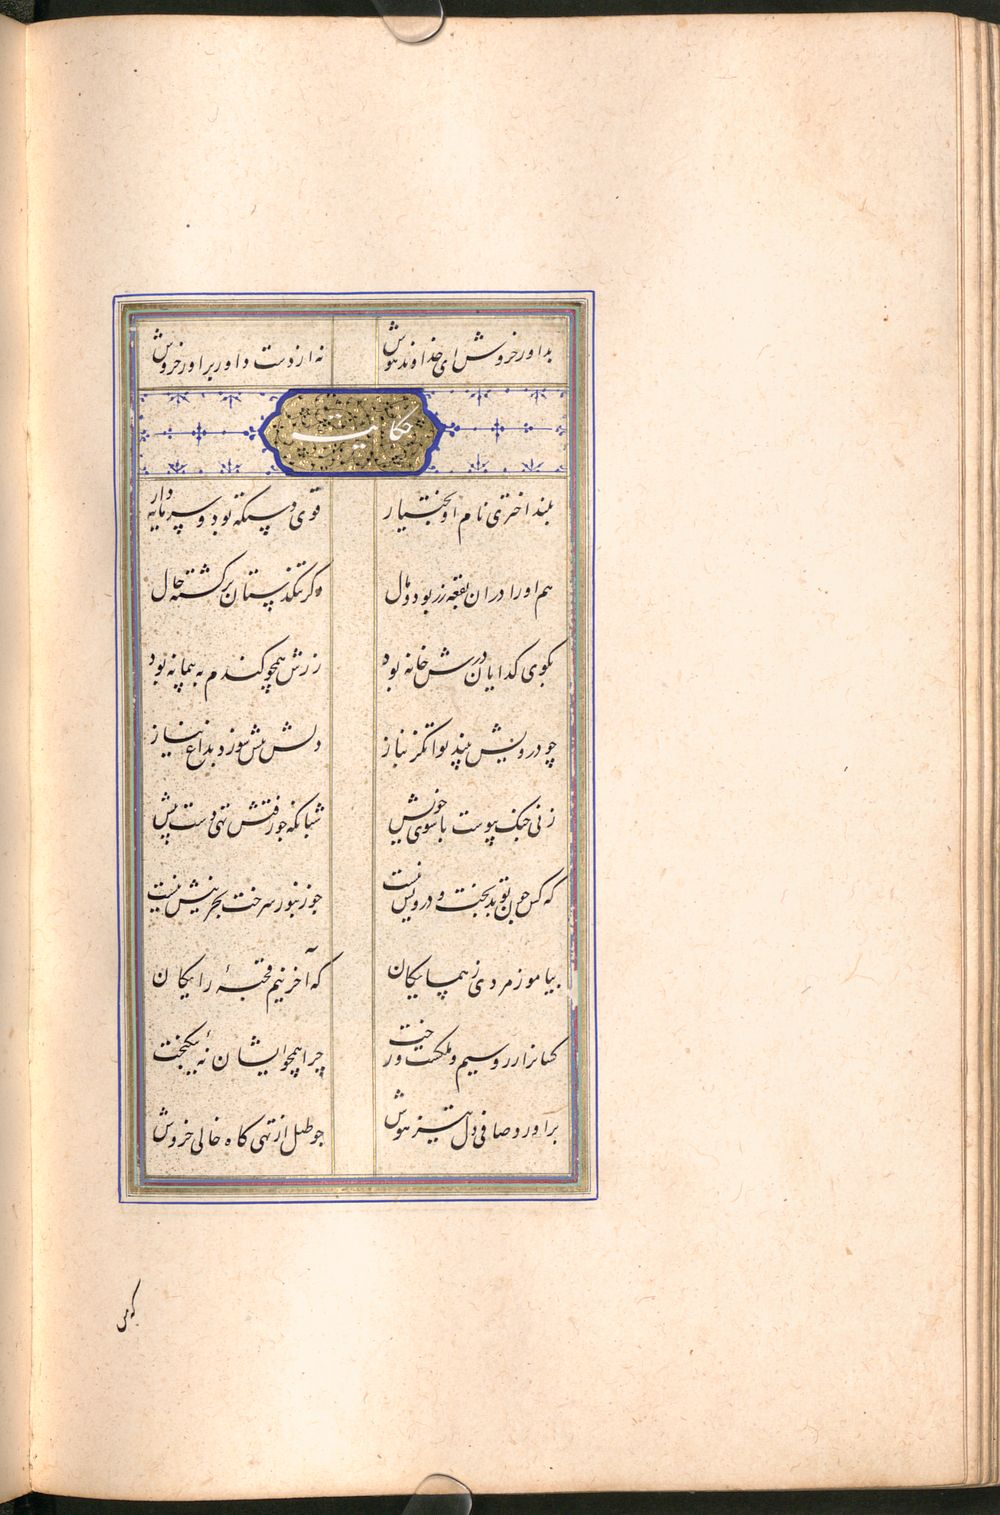 بداور خروش ای خداوند هوش نه از دست داور براور خروش
حکایت
بلند اختری نام او بختیار قوی دستکه بود و سرمایه دار
هم او را دران بقعه زر بود و مال دکر تنکدستان برکشته حال
بکوی کدایان درش خانه بود زرش همچو کندم به پیمانه بود
چو درویش بیند توانکر بناز دلش بیش سوزد بداغ نیاز
زنی جنک پیوست با شوی خویش شبانکه چو رفتش تهی دست پیش
که کس چون تو بدبخت و درویش نیست چو زنبور سرخت بجز نیش نیست
بیاموز مردی ز همسایکان که آخر نیم قحبهٔ رایکان
کسانرا زر و سیم و ملکست و رخت چرا همچو ایشان نهٔ نیکبخت
براورد صافی دل تیز هوش چو طبل از تهی کاه خالی خروش
که من